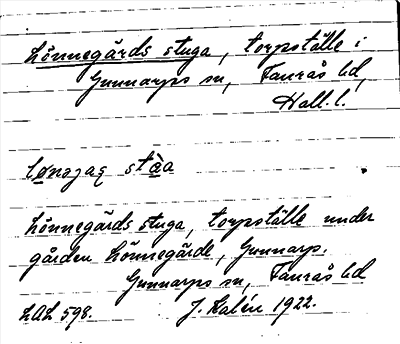 Lönnegårds stuga, torpställe i
Gunnarps sn, Faurås hd,
Hall. l.
lønəjaʂ stὰa
Lönnegårds stuga, torpställe under
gården Lönnegårde, Gunnarp.
Gunnarps sn, Faurås hd
LAL 598. J. Kalén 1922.